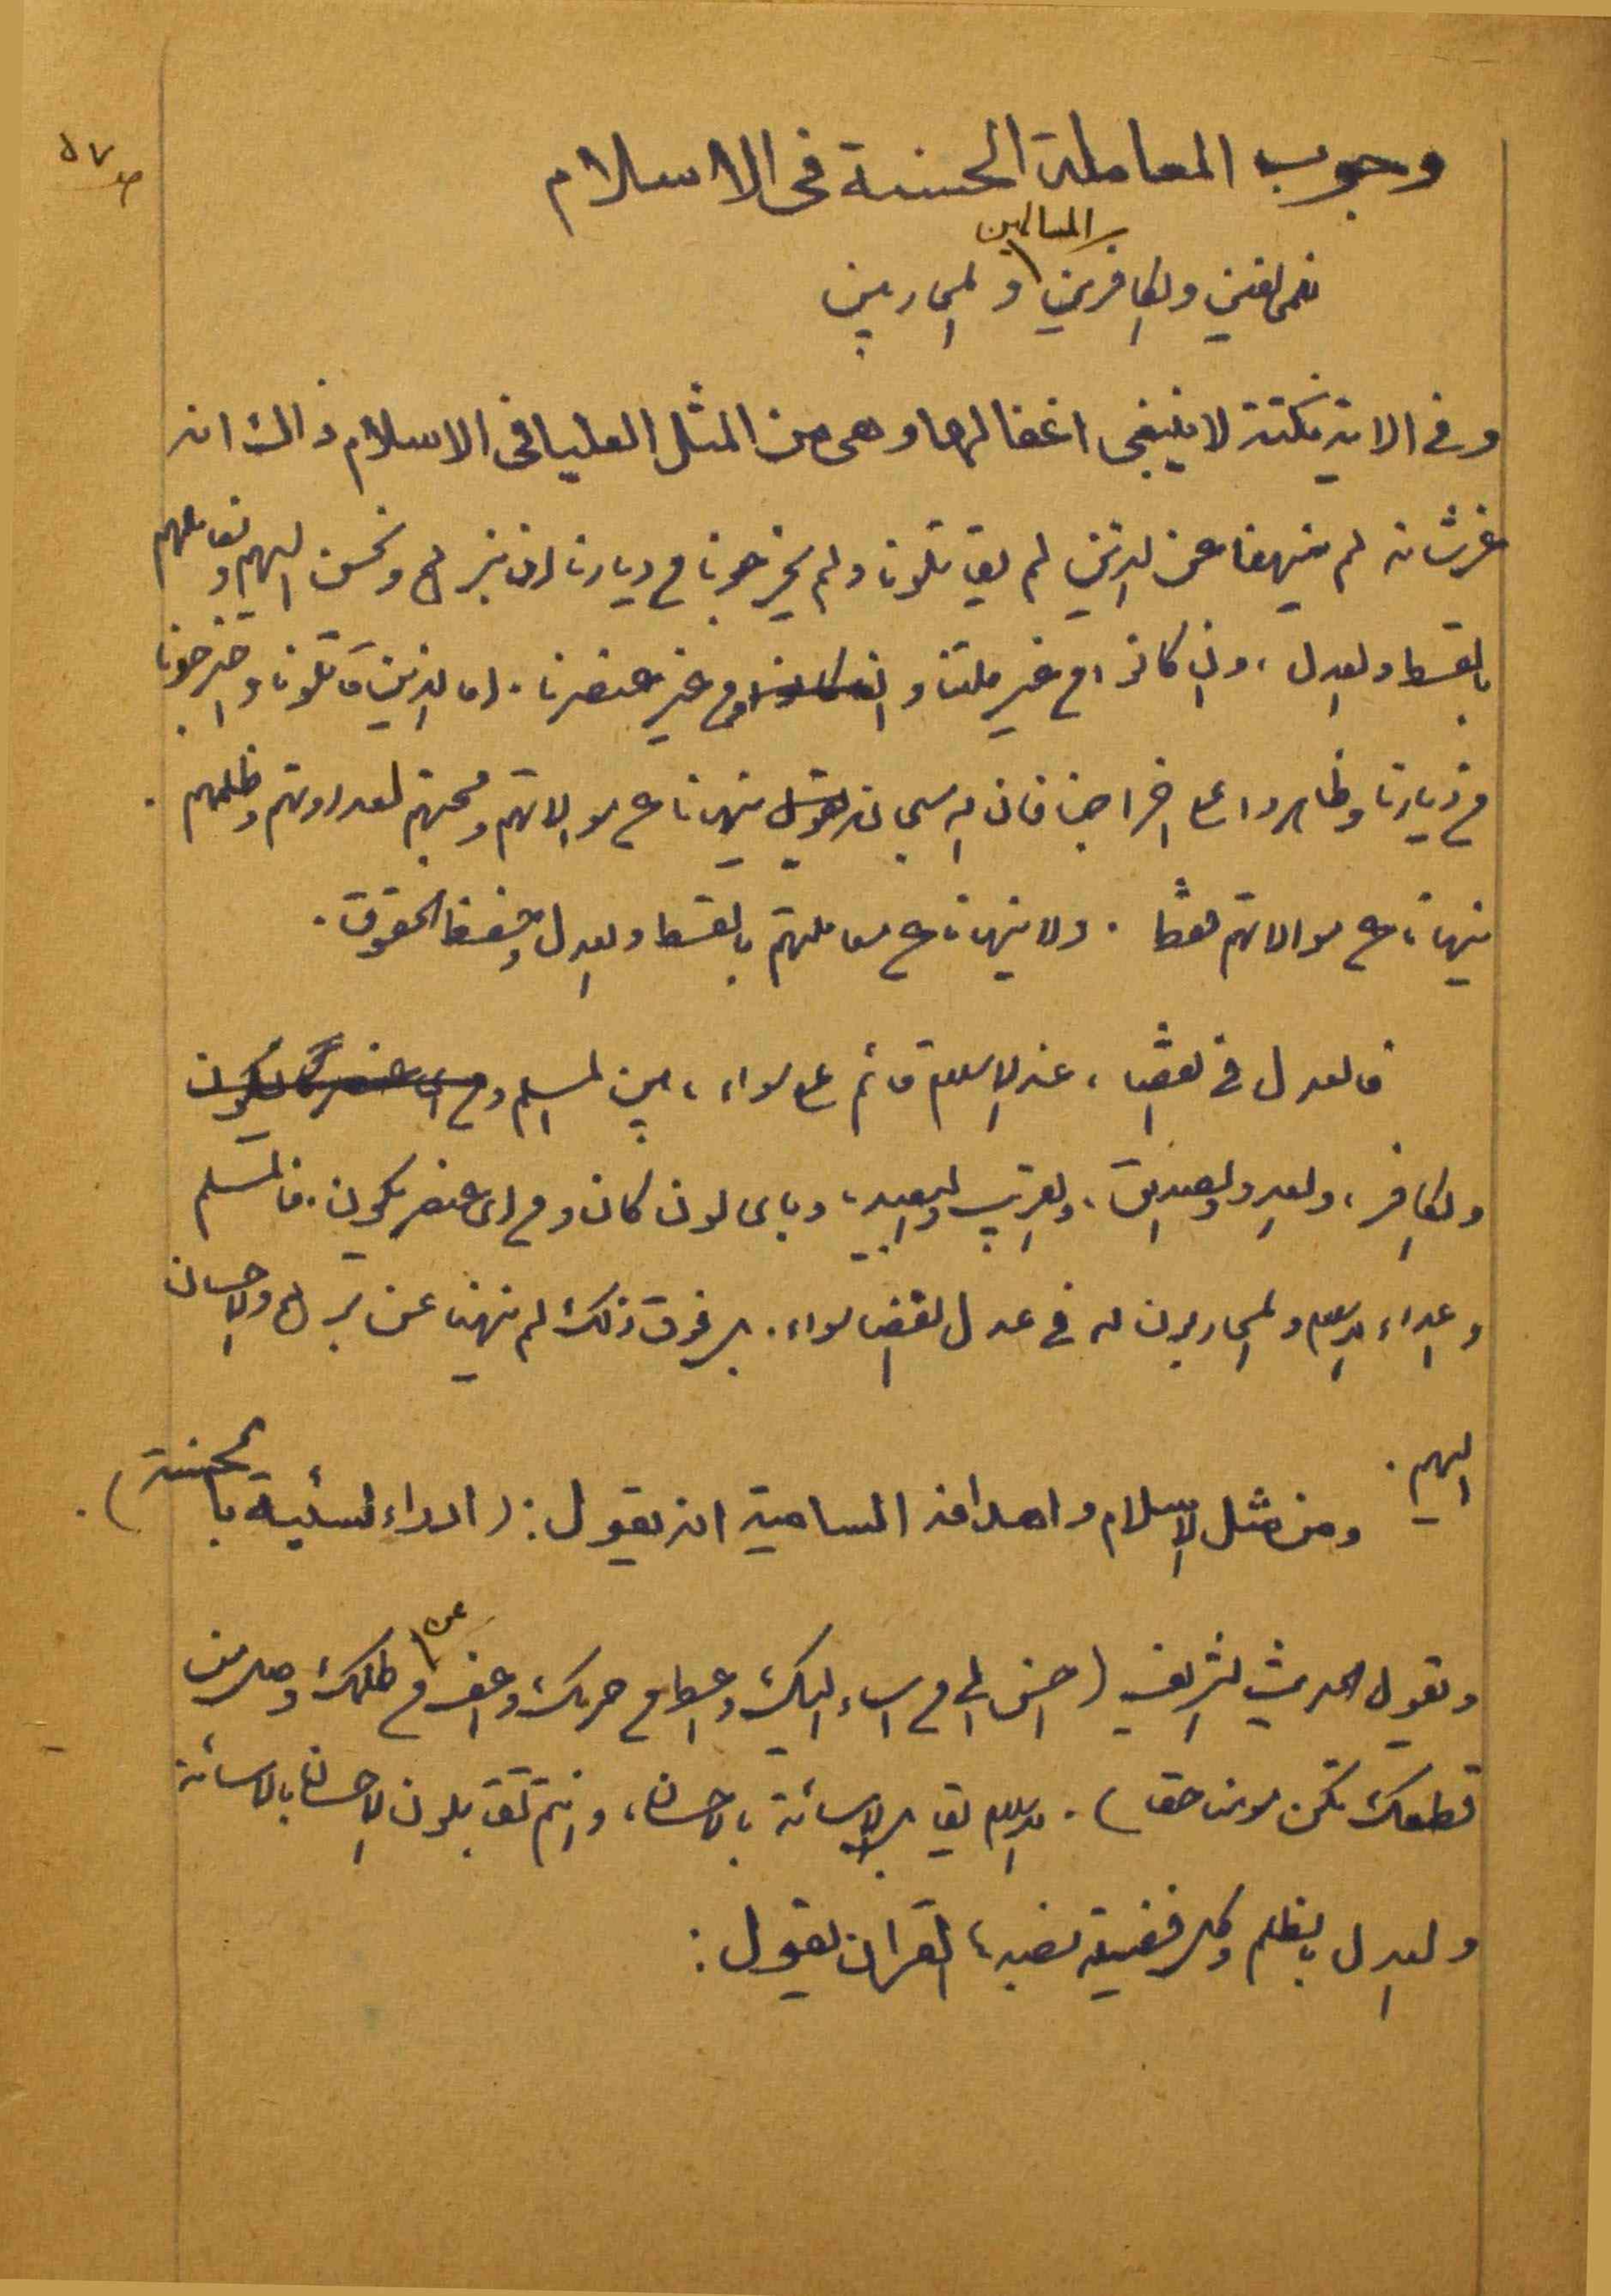 ص ٥٧
وجوب المعاملة الحسنة فى الاسلام
للمخالفين والكافرين المسالمين والمحاربين
وفي الاية نكتة لا ينبغى اغفالها وهى من المثل العليا فى الاسلام ذالك انه
عز شانه لم ينهنا عن الذين لم يقاتلونا ولم يخرجونا من ديارنا ان نبرهم ونحسن اليهم ونعاملهم
بالقسط والعدل ، وان كانوا من غير ملتنا و من غير عنصرنا . اما الذين قاتلونا واخرجونا
من ديارنا وظاهروا على اخراجنا فان الله سبحانه ينهانا عن موالاتهم ومحبتهم لعداوتهم وظلمهم .
ينهانا عن موالاتهم فقط . ولا ينهانا عن معاملتهم بالقسط والعدل وحفظ الحقوق .
فالعدل في القضاء ، عند الاسلام قائم على سواء ، بين المسلم
والكافر ، والعدو والصديق ، والقريب والبعيد ، وباى لون كان ومن اى عنصر يكون . فالمسلم
واعداء الاسلام والمحاربون له في عدل القضا سواء . بل فوق ذلك لم ينهنا عن برهم والاحسان
اليهم .
ومن مثل الاسلام واهدافه السامية انه يقول : ( ادراء السئية بالحسنة ) .
ويقول الحديث الشريف ( احسن الى من اساء اليك واعط من حرمك واعف عن من ظلمك وصل من
قطعك تكن مومنا حقا ) . الاسلام يقابل الاسائة بالاحسان ، وانتم تقابلون الاحسان بالاسائة
والعدل بالظلم وكل فضيلة بضدها ، القران يقول :